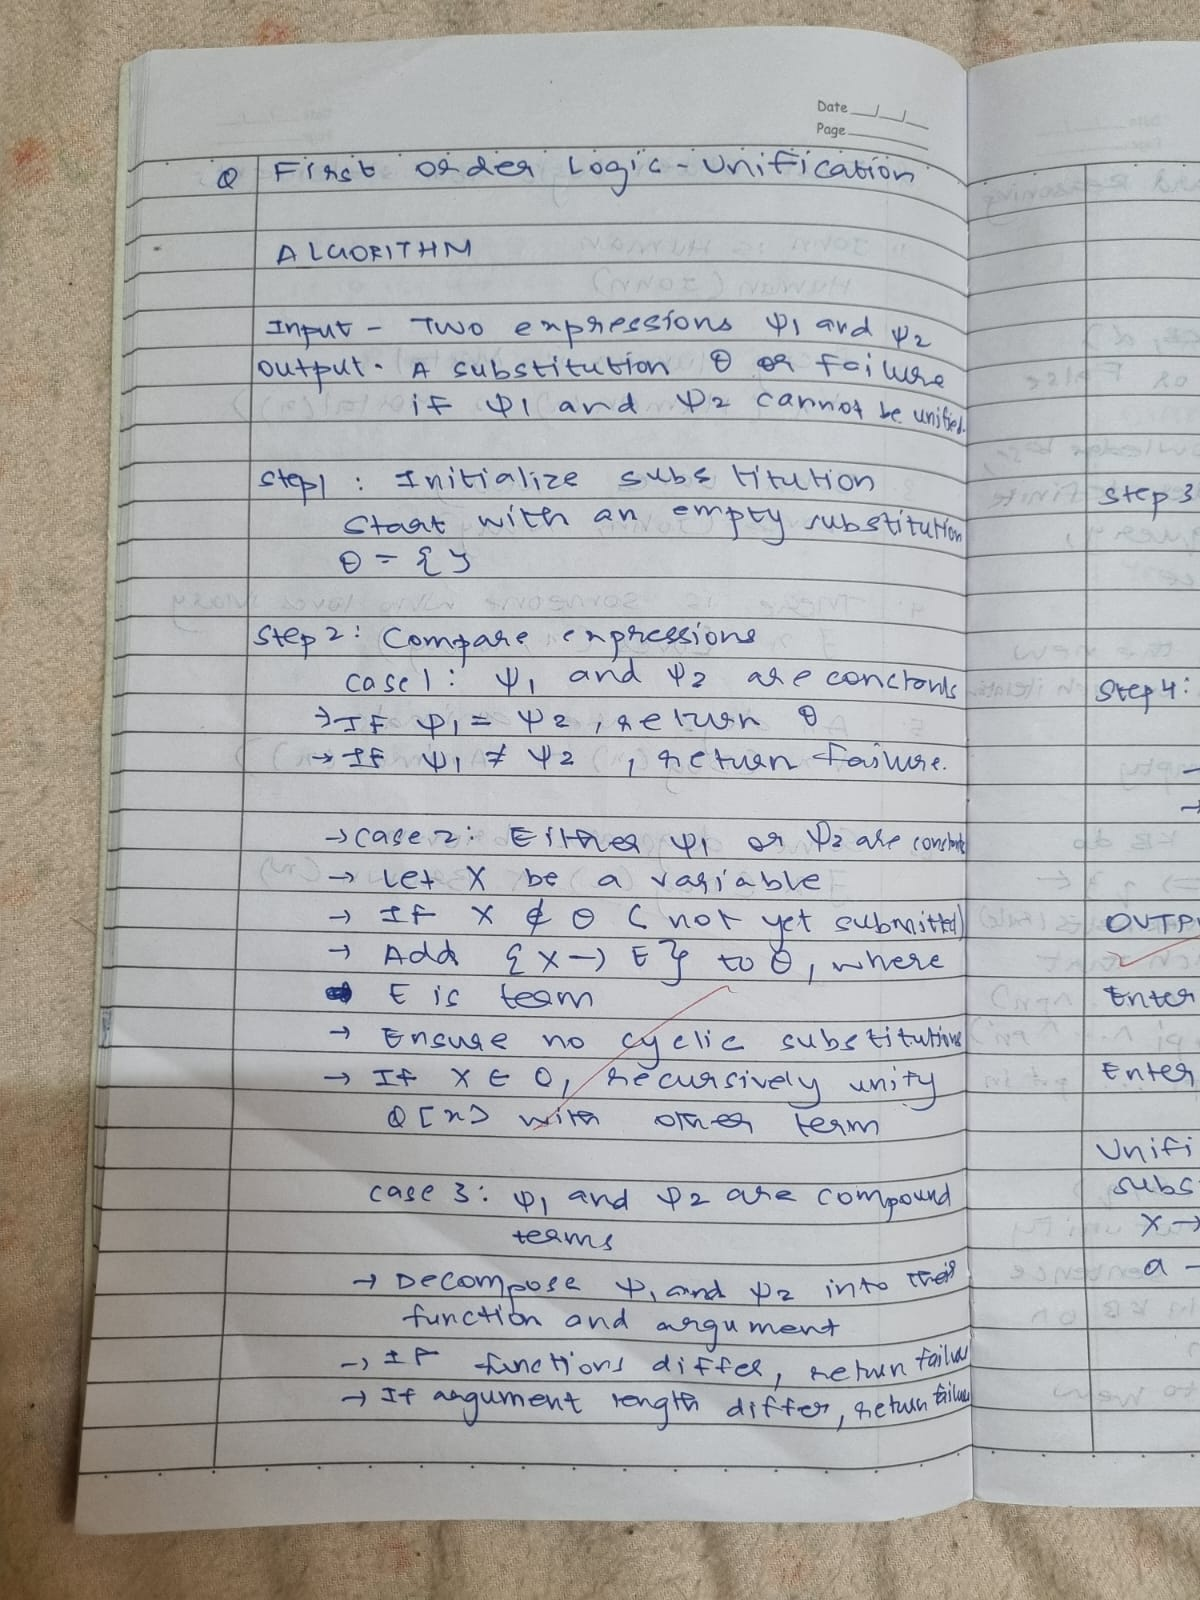 Date
Page
Q First order Logic - Unification
ALGORITHM
Input - Two expressions Ψ1 and Ψ2
Output - A substitution θ or failure
if Ψ1 and Ψ2 cannot be unified.
Step1 : Initialize substitution
Start with an empty substitution
θ = { }
Step 2: Compare expressions
Case 1: Ψ1 and Ψ2 are constants
→ If Ψ1 = Ψ2, return θ
→ If Ψ1 ≠ Ψ2, return failure.
→ Case 2: Either Ψ1 or Ψ2 are constants
→ Let X be a variable
→ If X ∉ θ ( not yet submitted)
→ Add {X → E} to θ, where
E is term
→ Ensure no cyclic substitutions
→ If X ∈ O, recursively unity
Q[x] with other term
Case 3: Ψ1 and Ψ2 are compound
terms
→ Decompose Ψ1 and Ψ2 into their
function and argument
→ If functions differ, return failure
→ If argument length differ, return failure
Step 3
Step 4:
OUTP
Enter
Enter
Unifi
subs
X →
a -